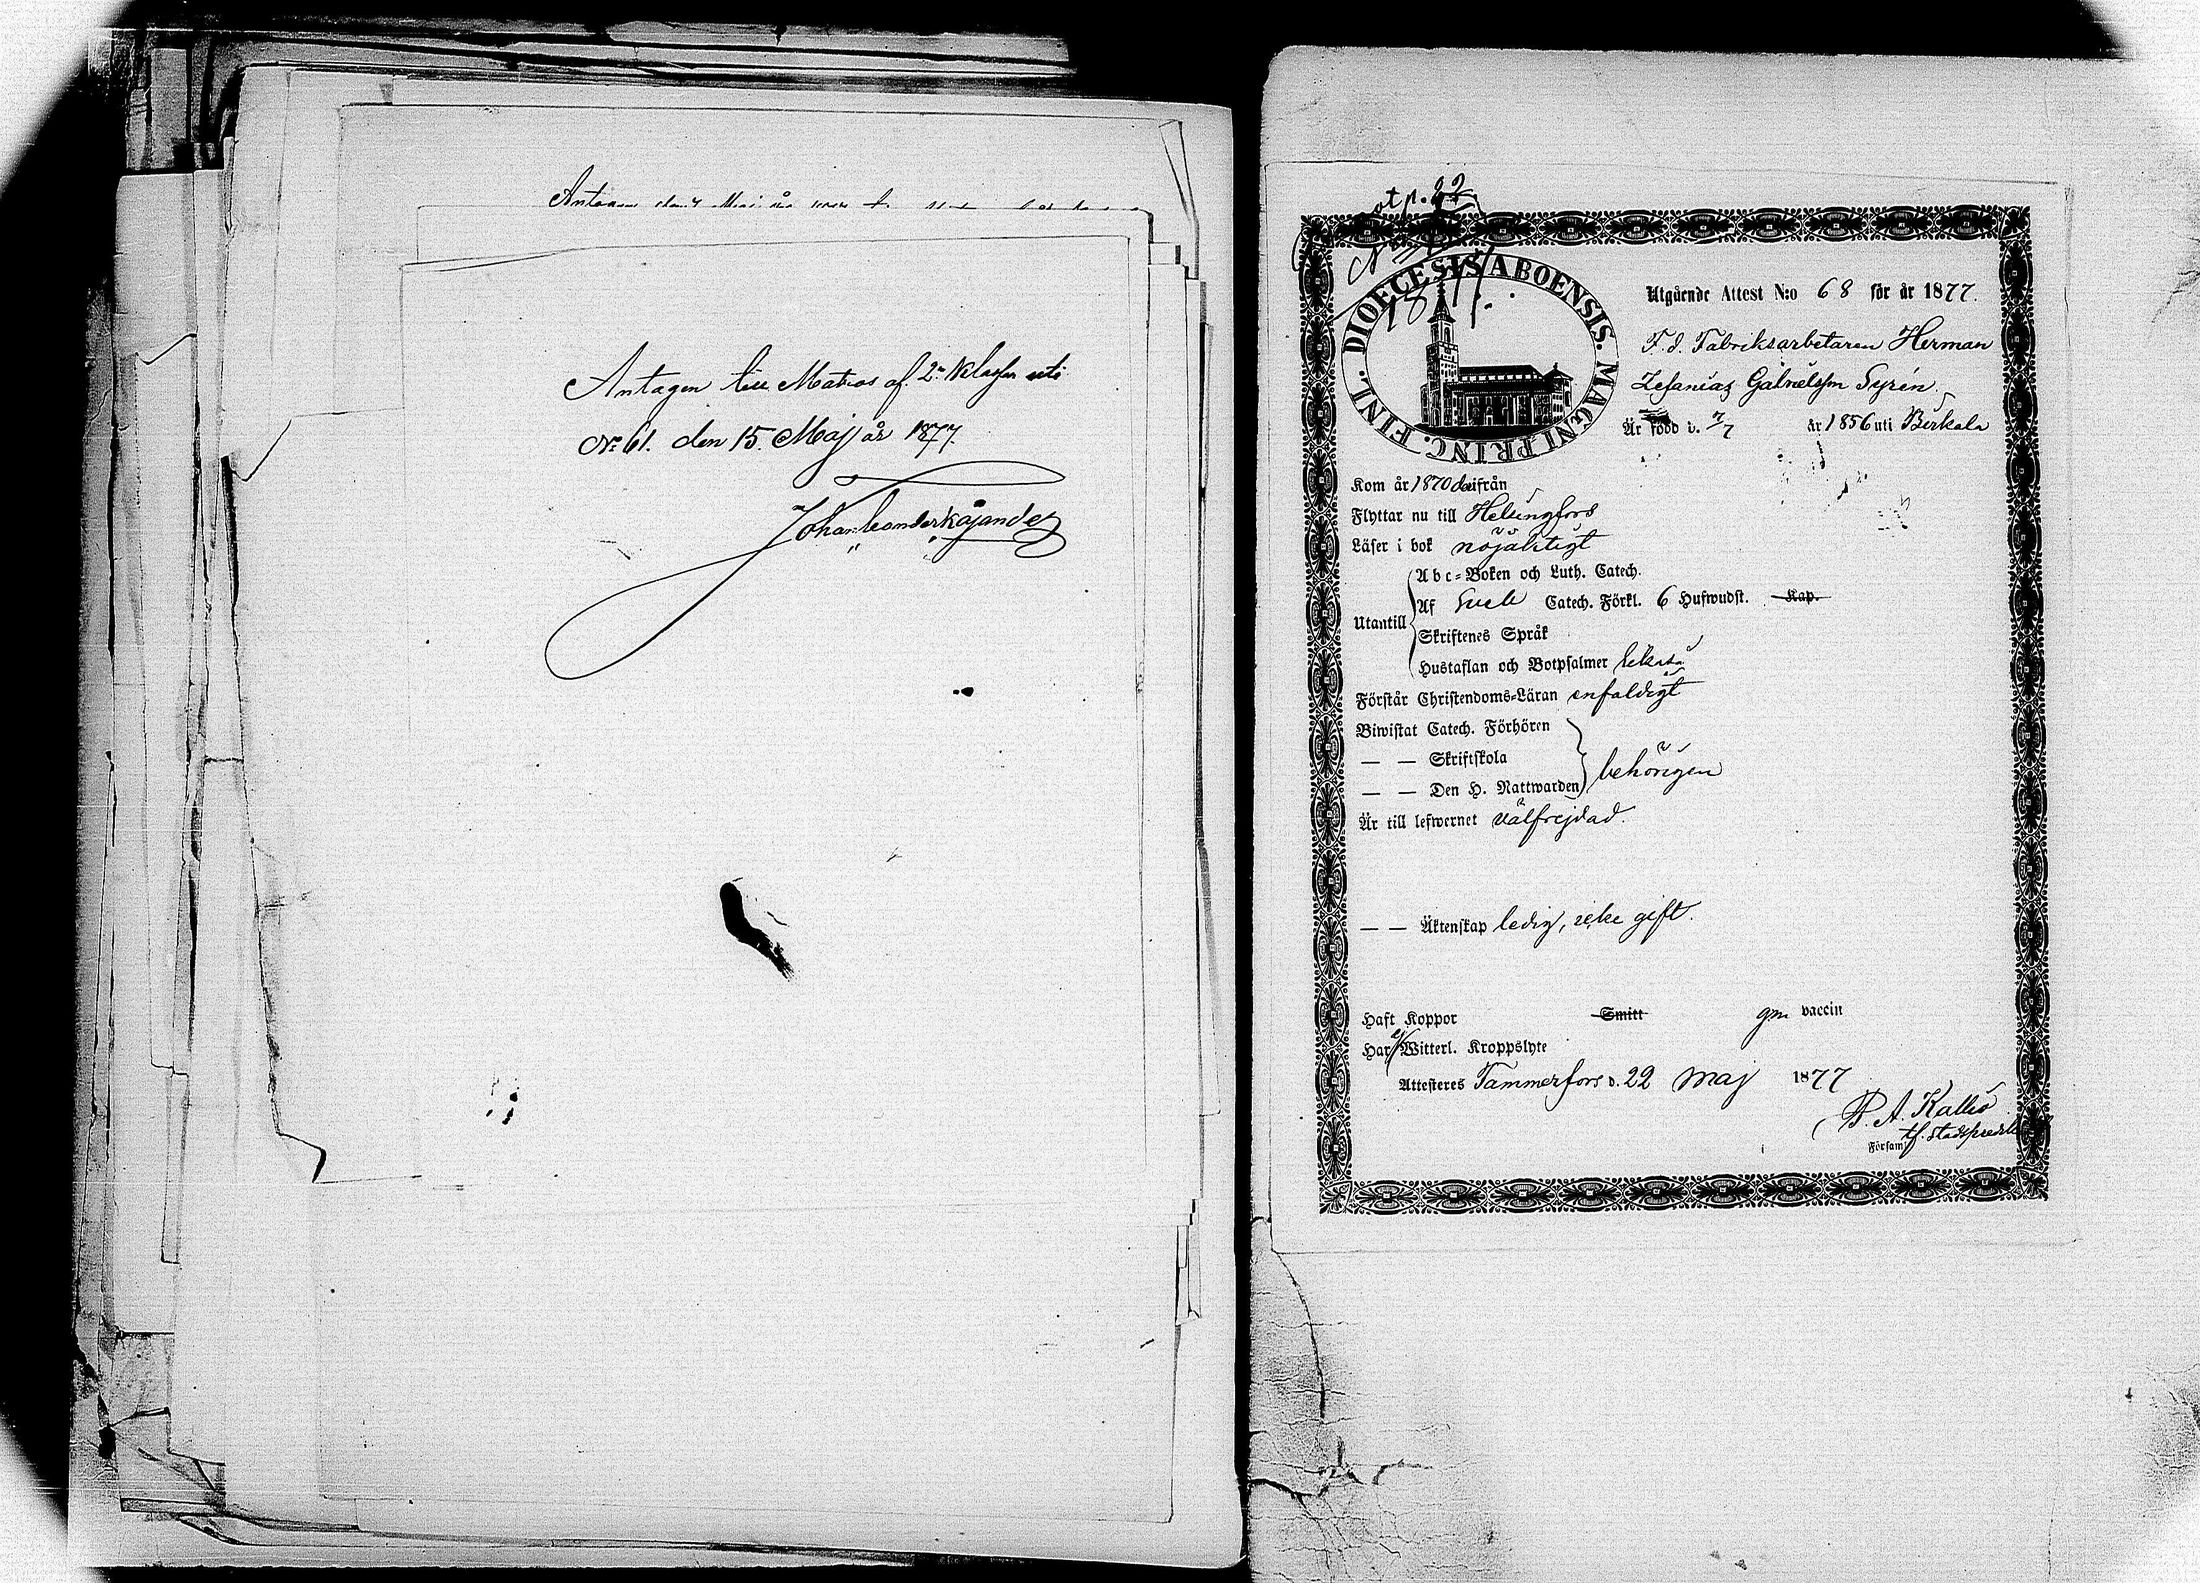 Antagen till Matros af 2:a Klassen uti
No 61. den 15. Maj år 1877.
Johan Leander Kajander
Not p. 22
1877.
DIOECESIS ABOENSIS. MAGNI PRINC. FINL.
Utgående Attest N:o 68 för år 1877.
F. d. Fabriksarbetaren Herman
Zefanias Gabrielsson Syrén.
Är född d. 7/7 år 1856 uti Birkala
Kom år 1870 derifrån
Flyttar nu till Helsingfors
Läser i bok nöjaktigt
Abc-Boken och Luth. Catech.
Utantill Af Sveb Catech. Förkl. 6 Hufwudst. Kap.
Skriftenes Språk
Hustaflan och Botpsalmer
Förstår Christendoms-Läran enfaldigt
Biwistat Catech. Förhören
— — Skriftskola
— — Den H. Nattwarden behörigen
Är till lefwernet välfrejdad.
— — Äktenskap ledig, icke gift.
Haft Koppor Smitt gm vaccin
Har ej Witterl. Kroppslyte
Attesteres Tammerfors d. 22 maj 1877
B. A. Kallio
tf. Stadspredik
Församl